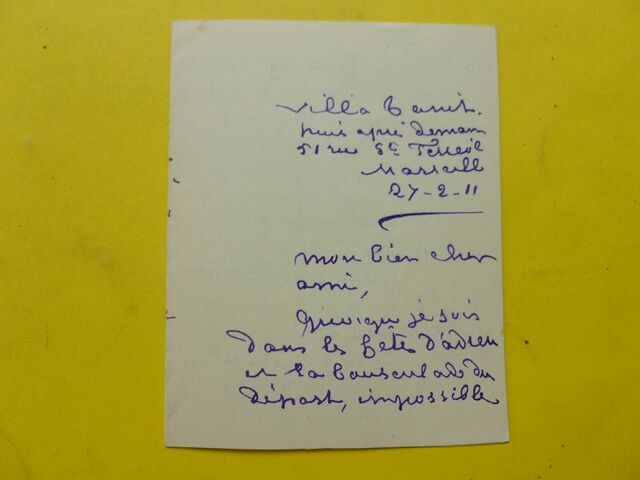 Villa Tanit.
puis après demain
51 rue St Ferréol
Marseille
27-2-11
mon bien cher
ami,
Quoique je sois
dans les fêtes d'adieu
et la bousculade du
départ, impossible